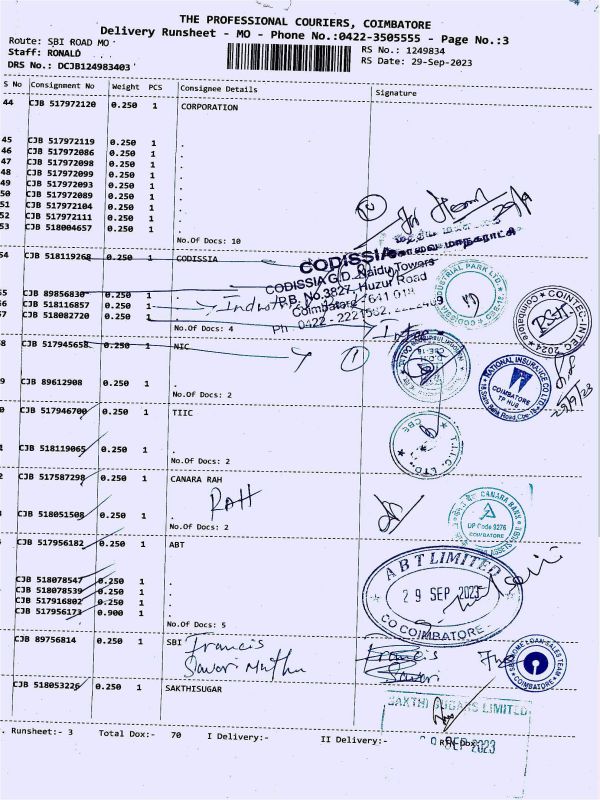 THE PROFESSIONAL COURIERS, COIMBATORE
Delivery Runsheet - MO - Phone No.:0422-3505555 - Page No.:3
Route: SBI ROAD MO
Staff: RONALD
DRS No.: DCJB124983403
RS No.: 1249834
RS Date: 29-Sep-2023
S No Consignment No Weight PCS Consignee Details Signature
44 CJB 517972120 0.250 1 CORPORATION
45 CJB 517972119 0.250 1 .
46 CJB 517972086 0.250 1 .
47 CJB 517972098 0.250 1 .
48 CJB 517972099 0.250 1 .
49 CJB 517972093 0.250 1 .
50 CJB 517972089 0.250 1 .
51 CJB 517972104 0.250 1 .
52 CJB 517972111 0.250 1 .
53 CJB 518004657 0.250 1 .
No.Of Docs: 10
29/9
கோவை மாநகராட்சி
54 CJB 518119268 0.250 1 CODISSIA
CODISSIA
CODISSIA G.D. Naidu Towers
P.B. No.3827, Huzur Road
Coimbatore - 641 018
Ph : 0422 - 2221582,
INDUSTRIAL PARK LTD
55 CJB 89856830 0.250 1 .
56 CJB 518116857 0.250 1 .
57 CJB 518082720 0.250 1 .
No.Of Docs: 4
COINTEC-INTEC 2024
Coimbatore
58 CJB 517945658 0.250 1 NIC
1
9 CJB 89612908 0.250 1 .
No.Of Docs: 2
NATIONAL INSURANCE CO LTD
COIMBATORE
TP HUB
29/9/23
0 CJB 517946700 0.250 1 TIIC
T.I.I.C. LTD.
CBE
1 CJB 518119065 0.250 1 .
No.Of Docs: 2
CJB 517587298 0.250 1 CANARA RAH
RAH
CJB 518051508 0.250 1 .
No.Of Docs: 2
CANARA BANK
DP Code 9276
COIMBATORE
CJB 517956182 0.250 1 ABT
ABT LIMITED
29 SEP 2023
COIMBATORE
CJB 518078547 0.250 1 .
CJB 518078539 0.250 1 .
CJB 517916802 0.250 1 .
CJB 517956173 0.900 1 .
No.Of Docs: 5
CJB 89756814 0.250 1 SBI
Francis
Savari Muthu
Francis
Savari
SBI HOME LOAN SALES TEAM
COIMBATORE
CJB 518053226 0.250 1 SAKTHISUGAR
SAKTHI SUGARS LIMITED
SEP 2023
. Runsheet:- 3 Total Dox:- 70 I Delivery:- II Delivery:- RTN Dox:-